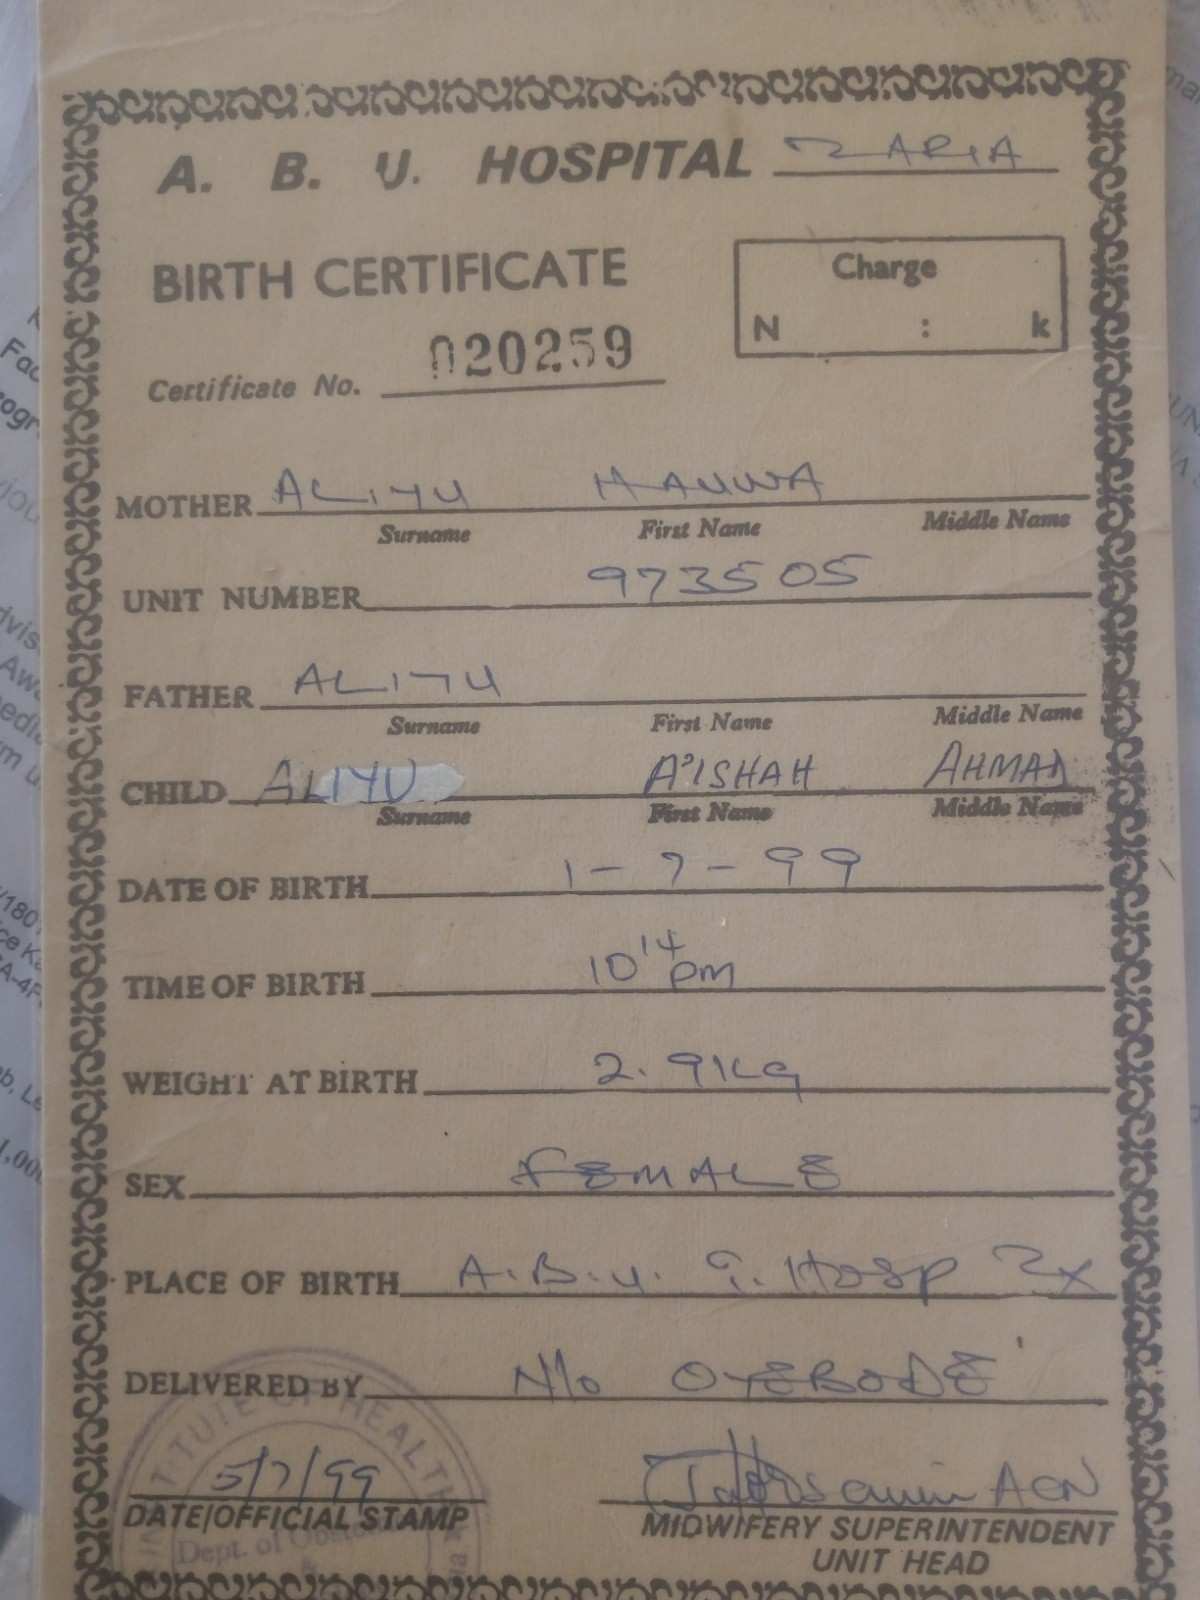 A. B. U. HOSPITAL ZARIA
BIRTH CERTIFICATE
Charge
N : k
Certificate No. 020259
MOTHER ALIYU HAUWA
Surname First Name Middle Name
UNIT NUMBER 973505
FATHER ALIYU
Surname First Name Middle Name
CHILD ALIYU A'ISHAH AHMAD
Surname First Name Middle Name
DATE OF BIRTH 1-7-99
TIME OF BIRTH 10 14 pm
WEIGHT AT BIRTH 2.9KG
SEX FEMALE
PLACE OF BIRTH A.B.U. T. Hosp Zx
DELIVERED BY N/O OYEBODE
5/7/99
DATE/OFFICIAL STAMP
MIDWIFERY SUPERINTENDENT
UNIT HEAD
TUTE OF HEALTH
Dept. of